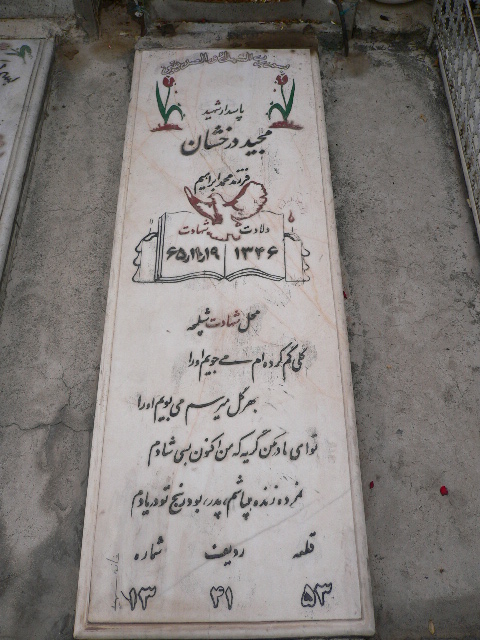 پاسدار شهید
مجید درخشان
فرزند محمد ابراهیم
ولادت شهادت
۱۳۴۶ ۶۵٫۱۱٫۱۹
محل شهادت شلمچه
گلی گم کرده ام می جویم او را
بهر گل میرسم می بویم او را
تو ای مادر من گریه که من اکنون بسی شادم
نمرده زنده میباشم، پدر، بود رنج تو در یادم
قطعه ردیف شماره
۵۳ ۴۱ ۱۳